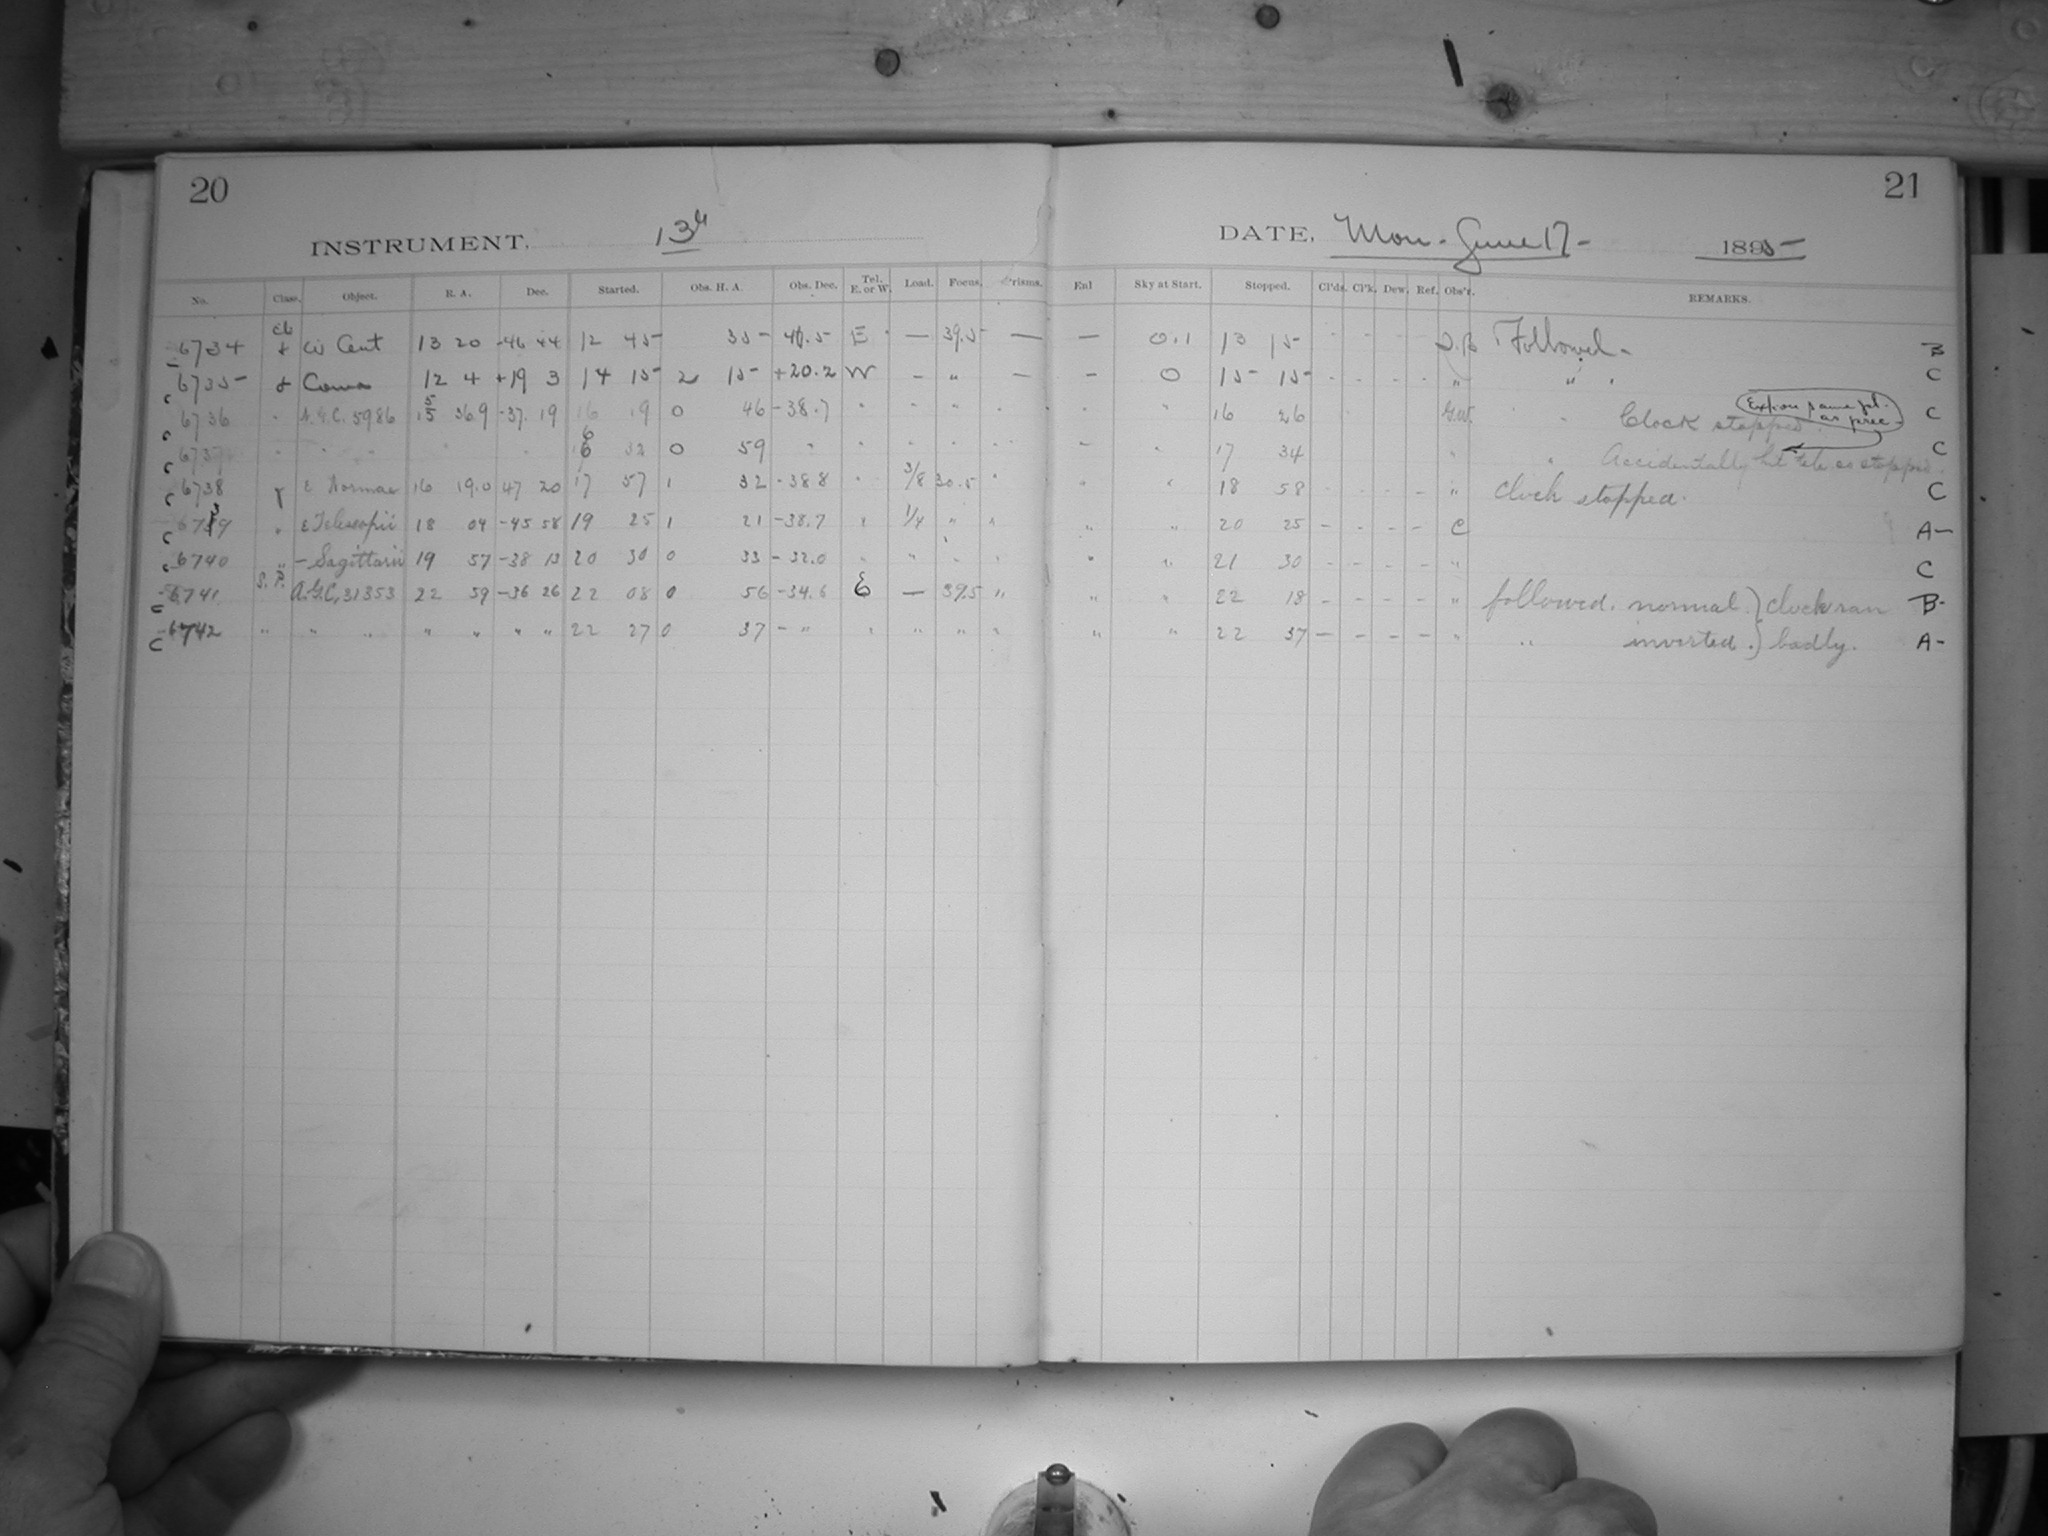 20
21
INSTRUMENT, 13"
DATE, Mon. June 17 - 1895
No. Class. Object. R. A. Dec. Started. Obs. H. A. Obs. Dec. Tel. E. or W. Load. Focus. Prisms. Enl Sky at Start. Stopped. Cl'ds. Cl'k. Dew. Ref. Obs'r. REMARKS.
c 6734 cb & ω Cent 13 20 -46 44 12 45 35 E — 39.5 — — 0.1 13 15 Followed - B
c 6735 & Coma 12 4 +19 3 14 15 2 15 +20.2 W — " — — 0 15 15 " " " C
c 6736 " A.G.C. 5986 15 36.9 -37. 19 16 19 0 46 -38.7 " " " " " " 16 26 G.W. " Clock stopped. Exp. on same pl. as prec. C
c 6737 " " " 6 32 0 59 " " " " " — " 17 34 " " Accidentally hit tele. so stopped. C
c 6738 γ ε Normae 16 19.0 47 20 17 57 1 32 -38.8 " 3/8 30.5 " " " 18 58 " clock stopped. C
c 6739 " ε Telescopii 18 04 -45 58 19 25 1 21 -38.7 " 1/4 " " " " 20 25 — — — — C A—
c 6740 " — Sagittarii 19 57 -38 13 20 30 0 33 - 32.0 " " " " " " 21 30 — — — — " C
c 6741 S. P. A.G.C. 31353 22 59 -36 26 22 08 0 56 -34.6 E — 39.5 " " " 22 18 — — — — " followed. normal. } clock ran B-
c 6742 " " " " " " " 22 27 0 37 - " " " " " " " 22 37 — — — — " " inverted. } badly. A-